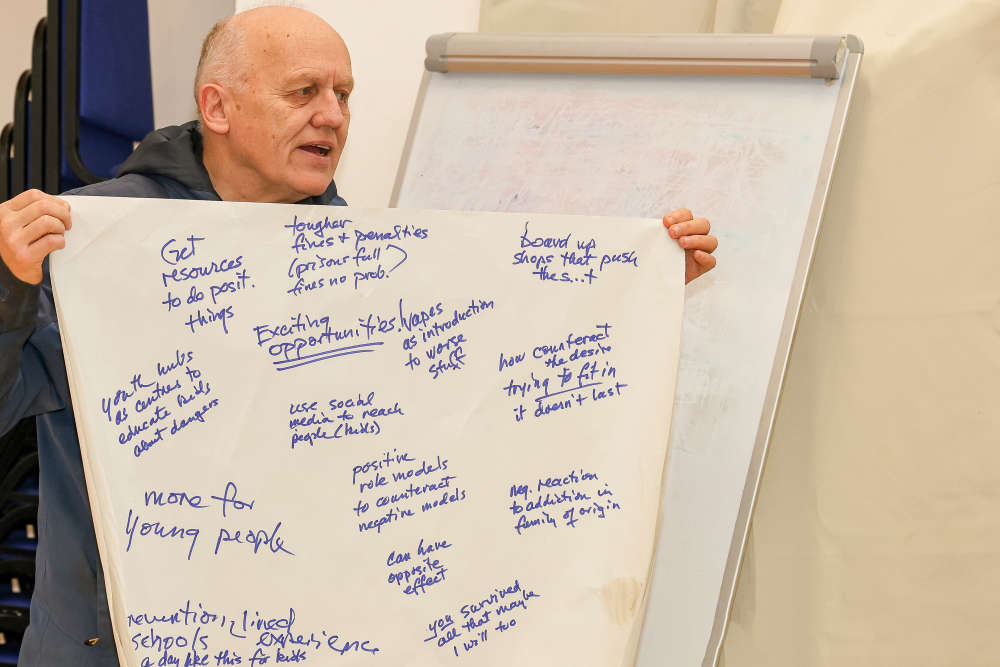 Get
resources
to do posit.
things
tougher
fines + penalties
(prisons full
fines no prob.)
board up
shops that push
the s...t
Exciting
opportunities.
Vapes
as introduction
to worse
stuff
how counteract
the desire
trying to fit in
it doesn't last
youth hubs
as centres to
educate kids
about dangers
use social
media to reach
people (kids)
positive
role models
to counteract
negative models
neg. reaction
to addiction in
family of origin
more for
young people
can have
opposite
effect
you survived
all that maybe
I will too
schools
experience
a day like this for kids